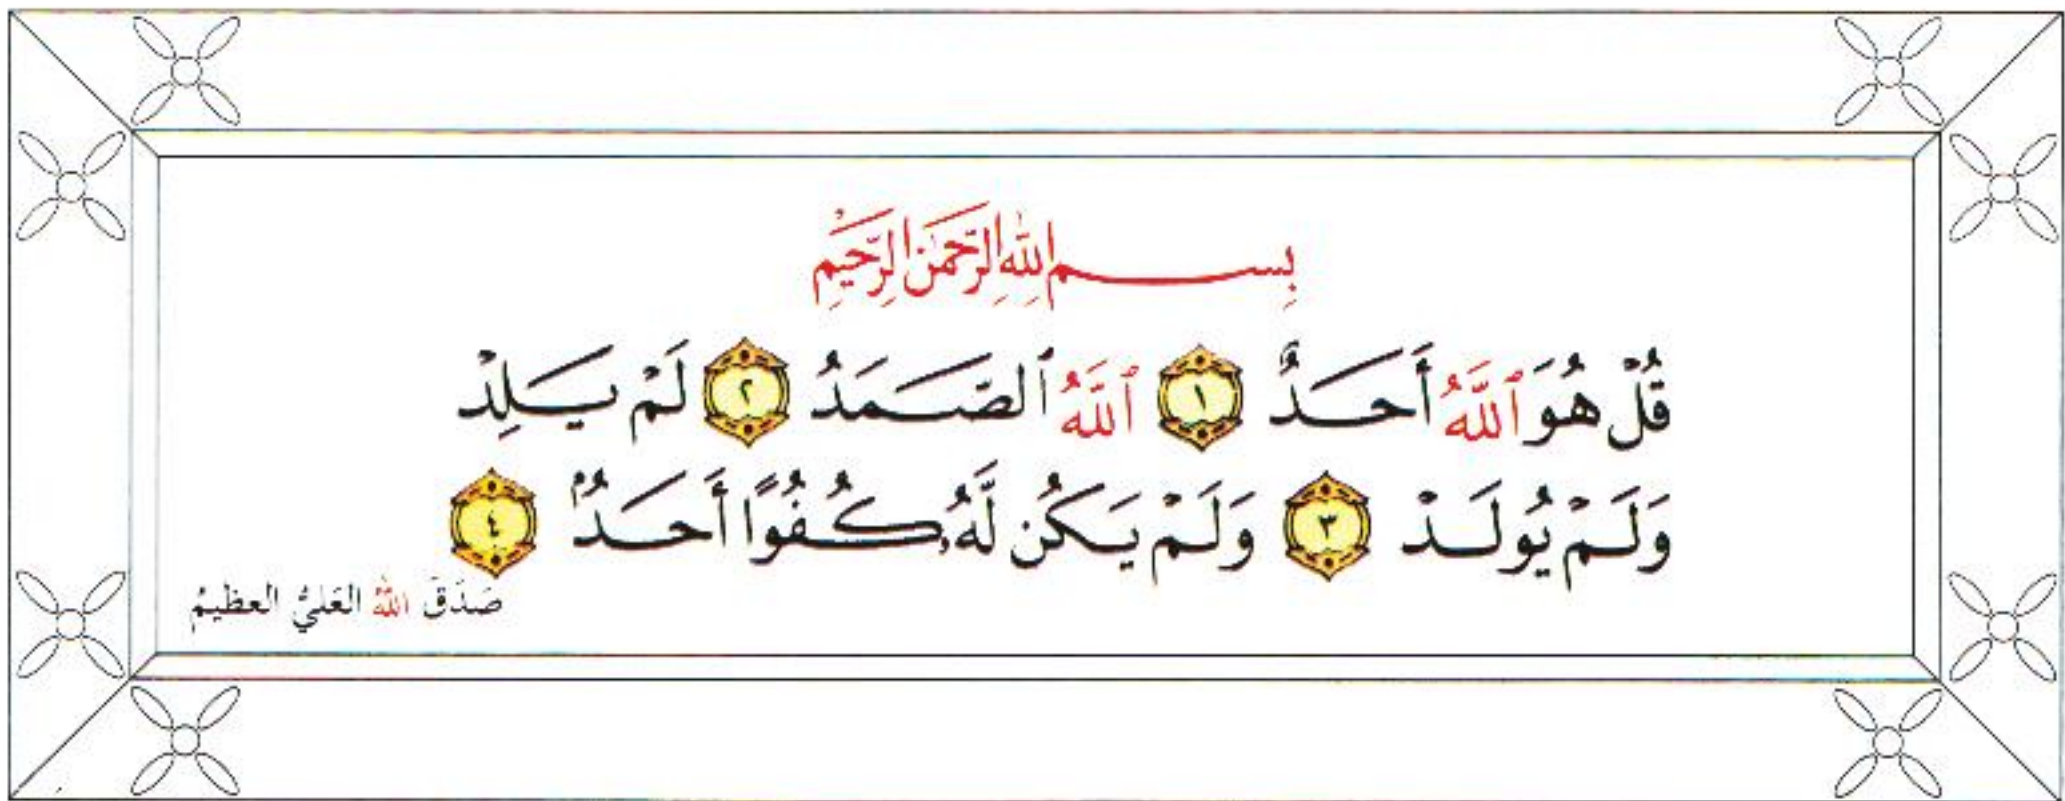 بِسْمِ اللهِ الرَّحْمٰنِ الرَّحِيْمِ
قُلْ هُوَ ٱللَّهُ أَحَدٌ ١ ٱللَّهُ ٱلصَّمَدُ ٢ لَمْ يَلِدْ
وَلَمْ يُولَدْ ٣ وَلَمْ يَكُن لَّهُۥ كُفُوًا أَحَدٌۢ ٤
صَدَقَ اللهُ العَليُّ العظيمُ